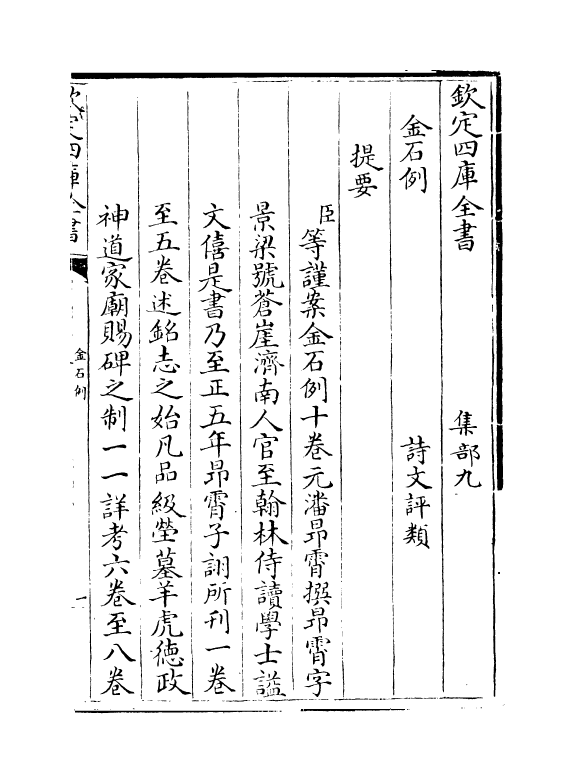 欽定四庫全書　集部九
金石例　詩文評類
提要
臣等謹案金石例十卷元潘昂霄撰昂霄字
景梁號蒼崖濟南人官至翰林侍讀學士諡
文僖是書乃至正五年昂霄子詡所刊一卷
至五卷述銘志之始凡品級塋墓羊虎徳政
神道家廟賜碑之制一一詳考六卷至八卷
欽定四庫全書
金石例
一